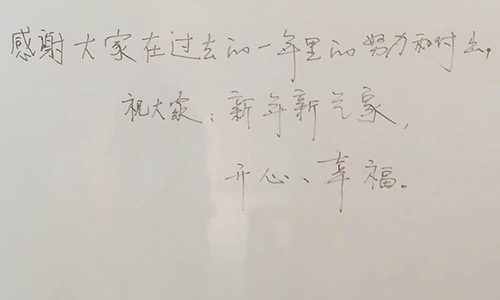 感谢大家在过去的一年里的努力和付出，
祝大家：新年新气象，
开心、幸福。